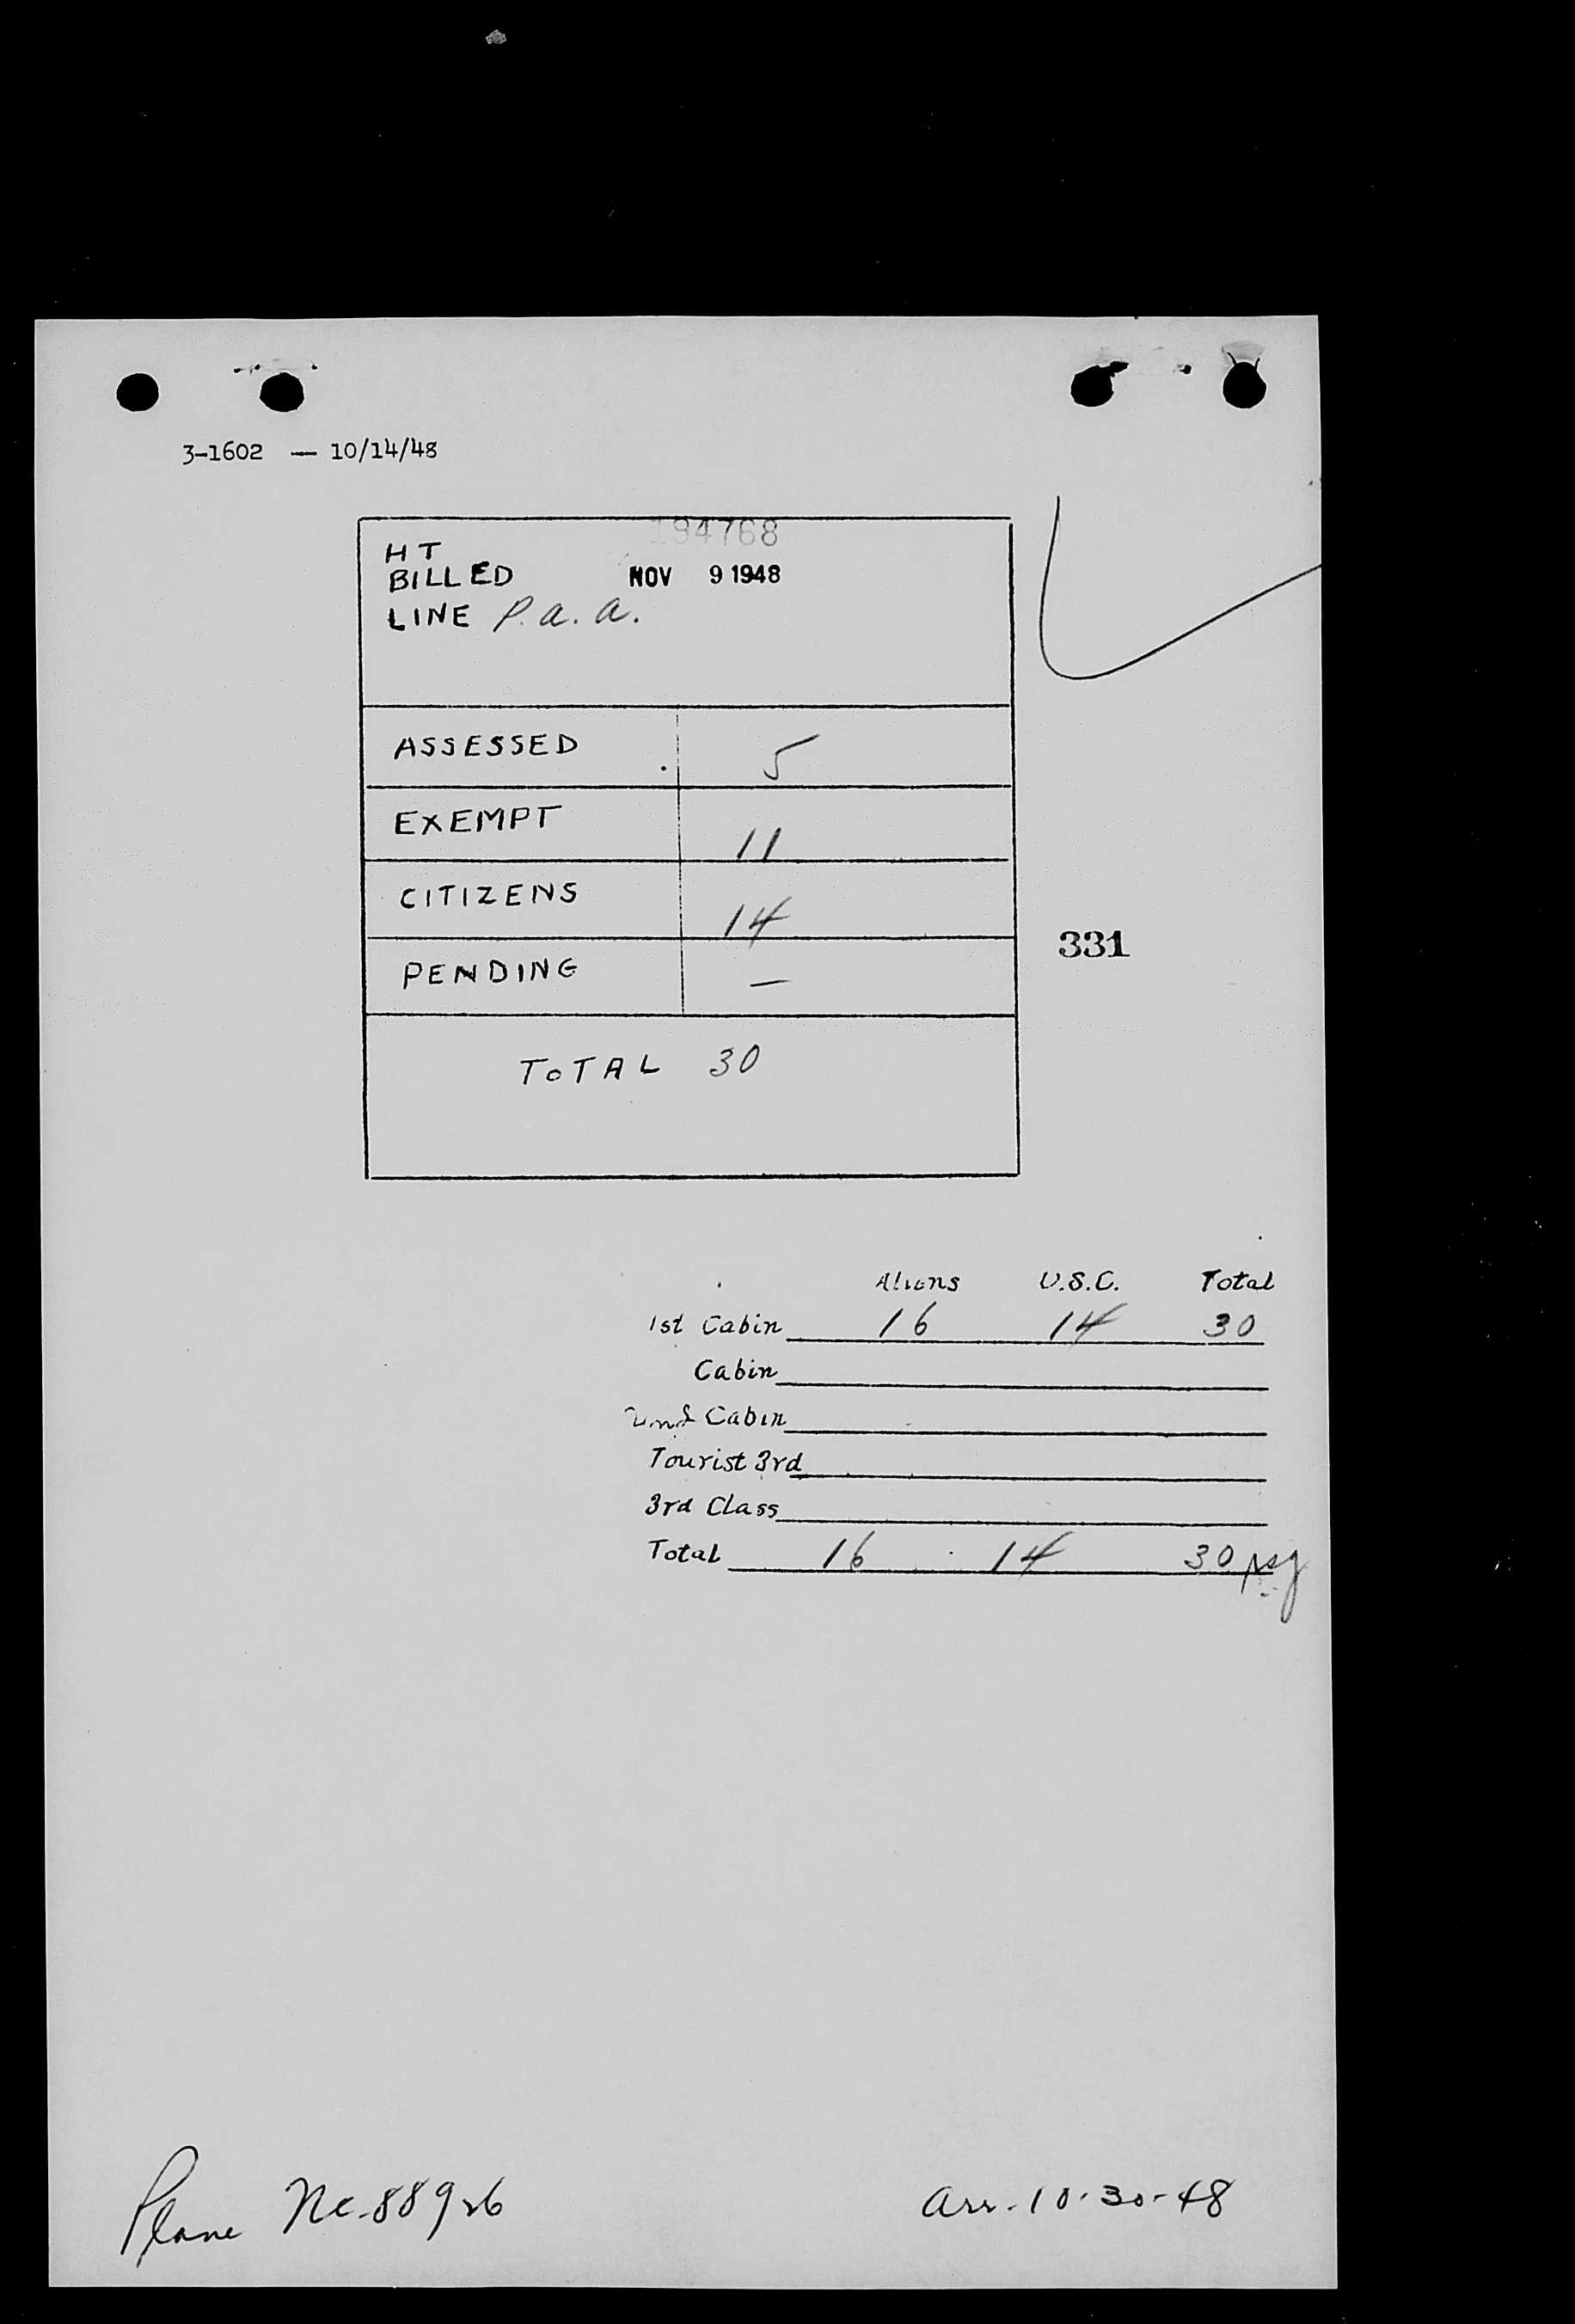 3-1602 — 10/14/48
194768
HT
BILLED NOV 9 1948
LINE P. a. a.
ASSESSED 5
EXEMPT 11
CITIZENS 14
331
PENDING —
TOTAL 30
Aliens U.S.C. Total
1st Cabin 16 14 30
Cabin
2nd Cabin
Tourist 3rd
3rd Class
Total 16 14 30 psg
Plane Nc-88926 arr-10-30-48